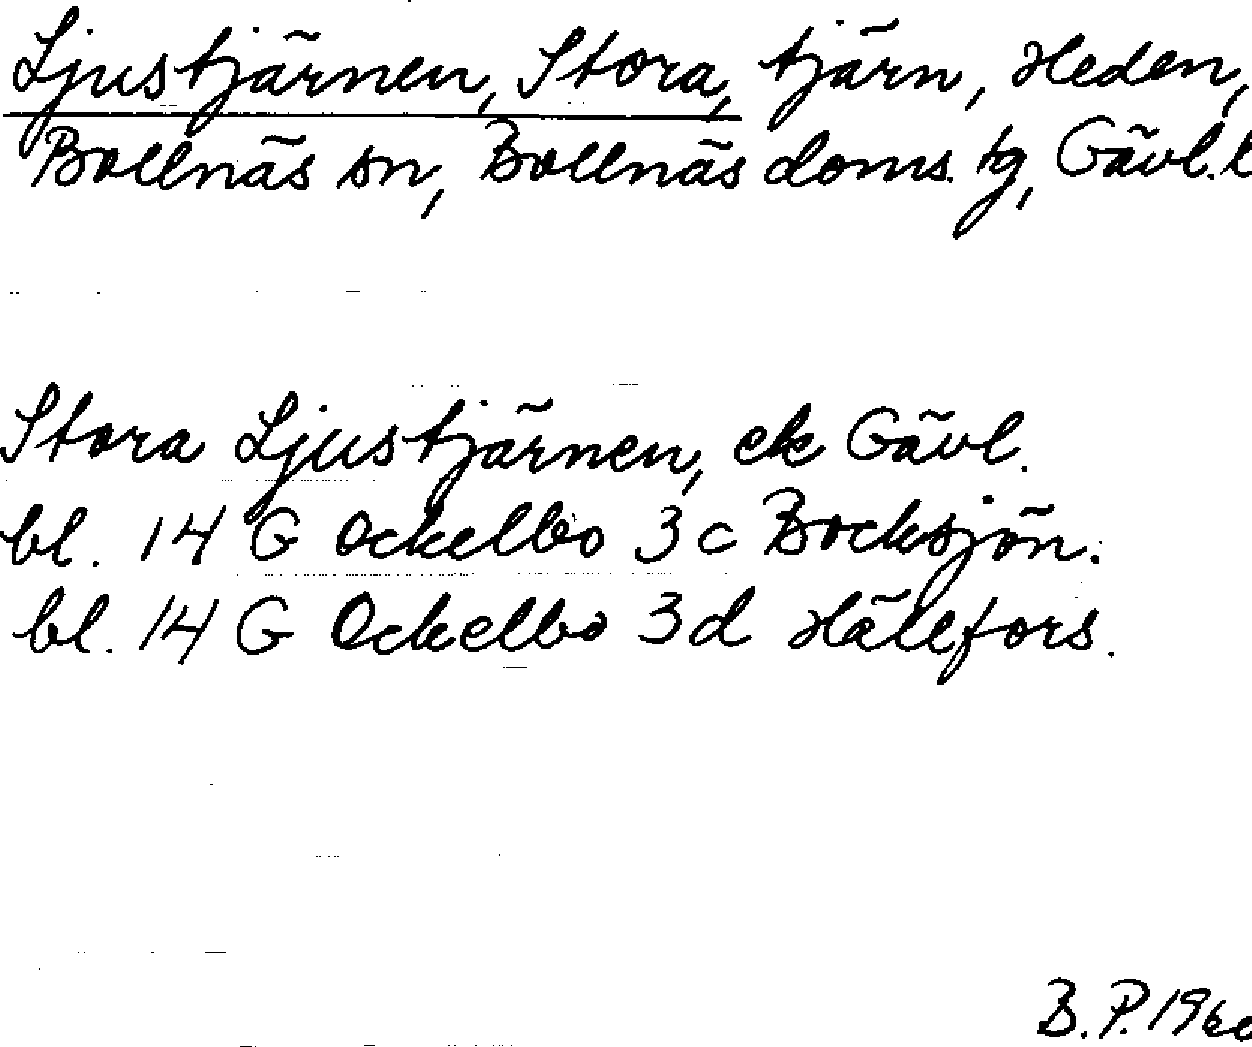 Ljustjärnen, Stora, tjärn, Heden,
Bollnäs sn, Bollnäs doms. tg, Gävl. l
Stora Ljustjärnen, ek Gävl.
bl. 14 G Ockelbo 3 c Bocksjön.
bl. 14 G Ockelbo 3 d Hällefors.
B. P. 196